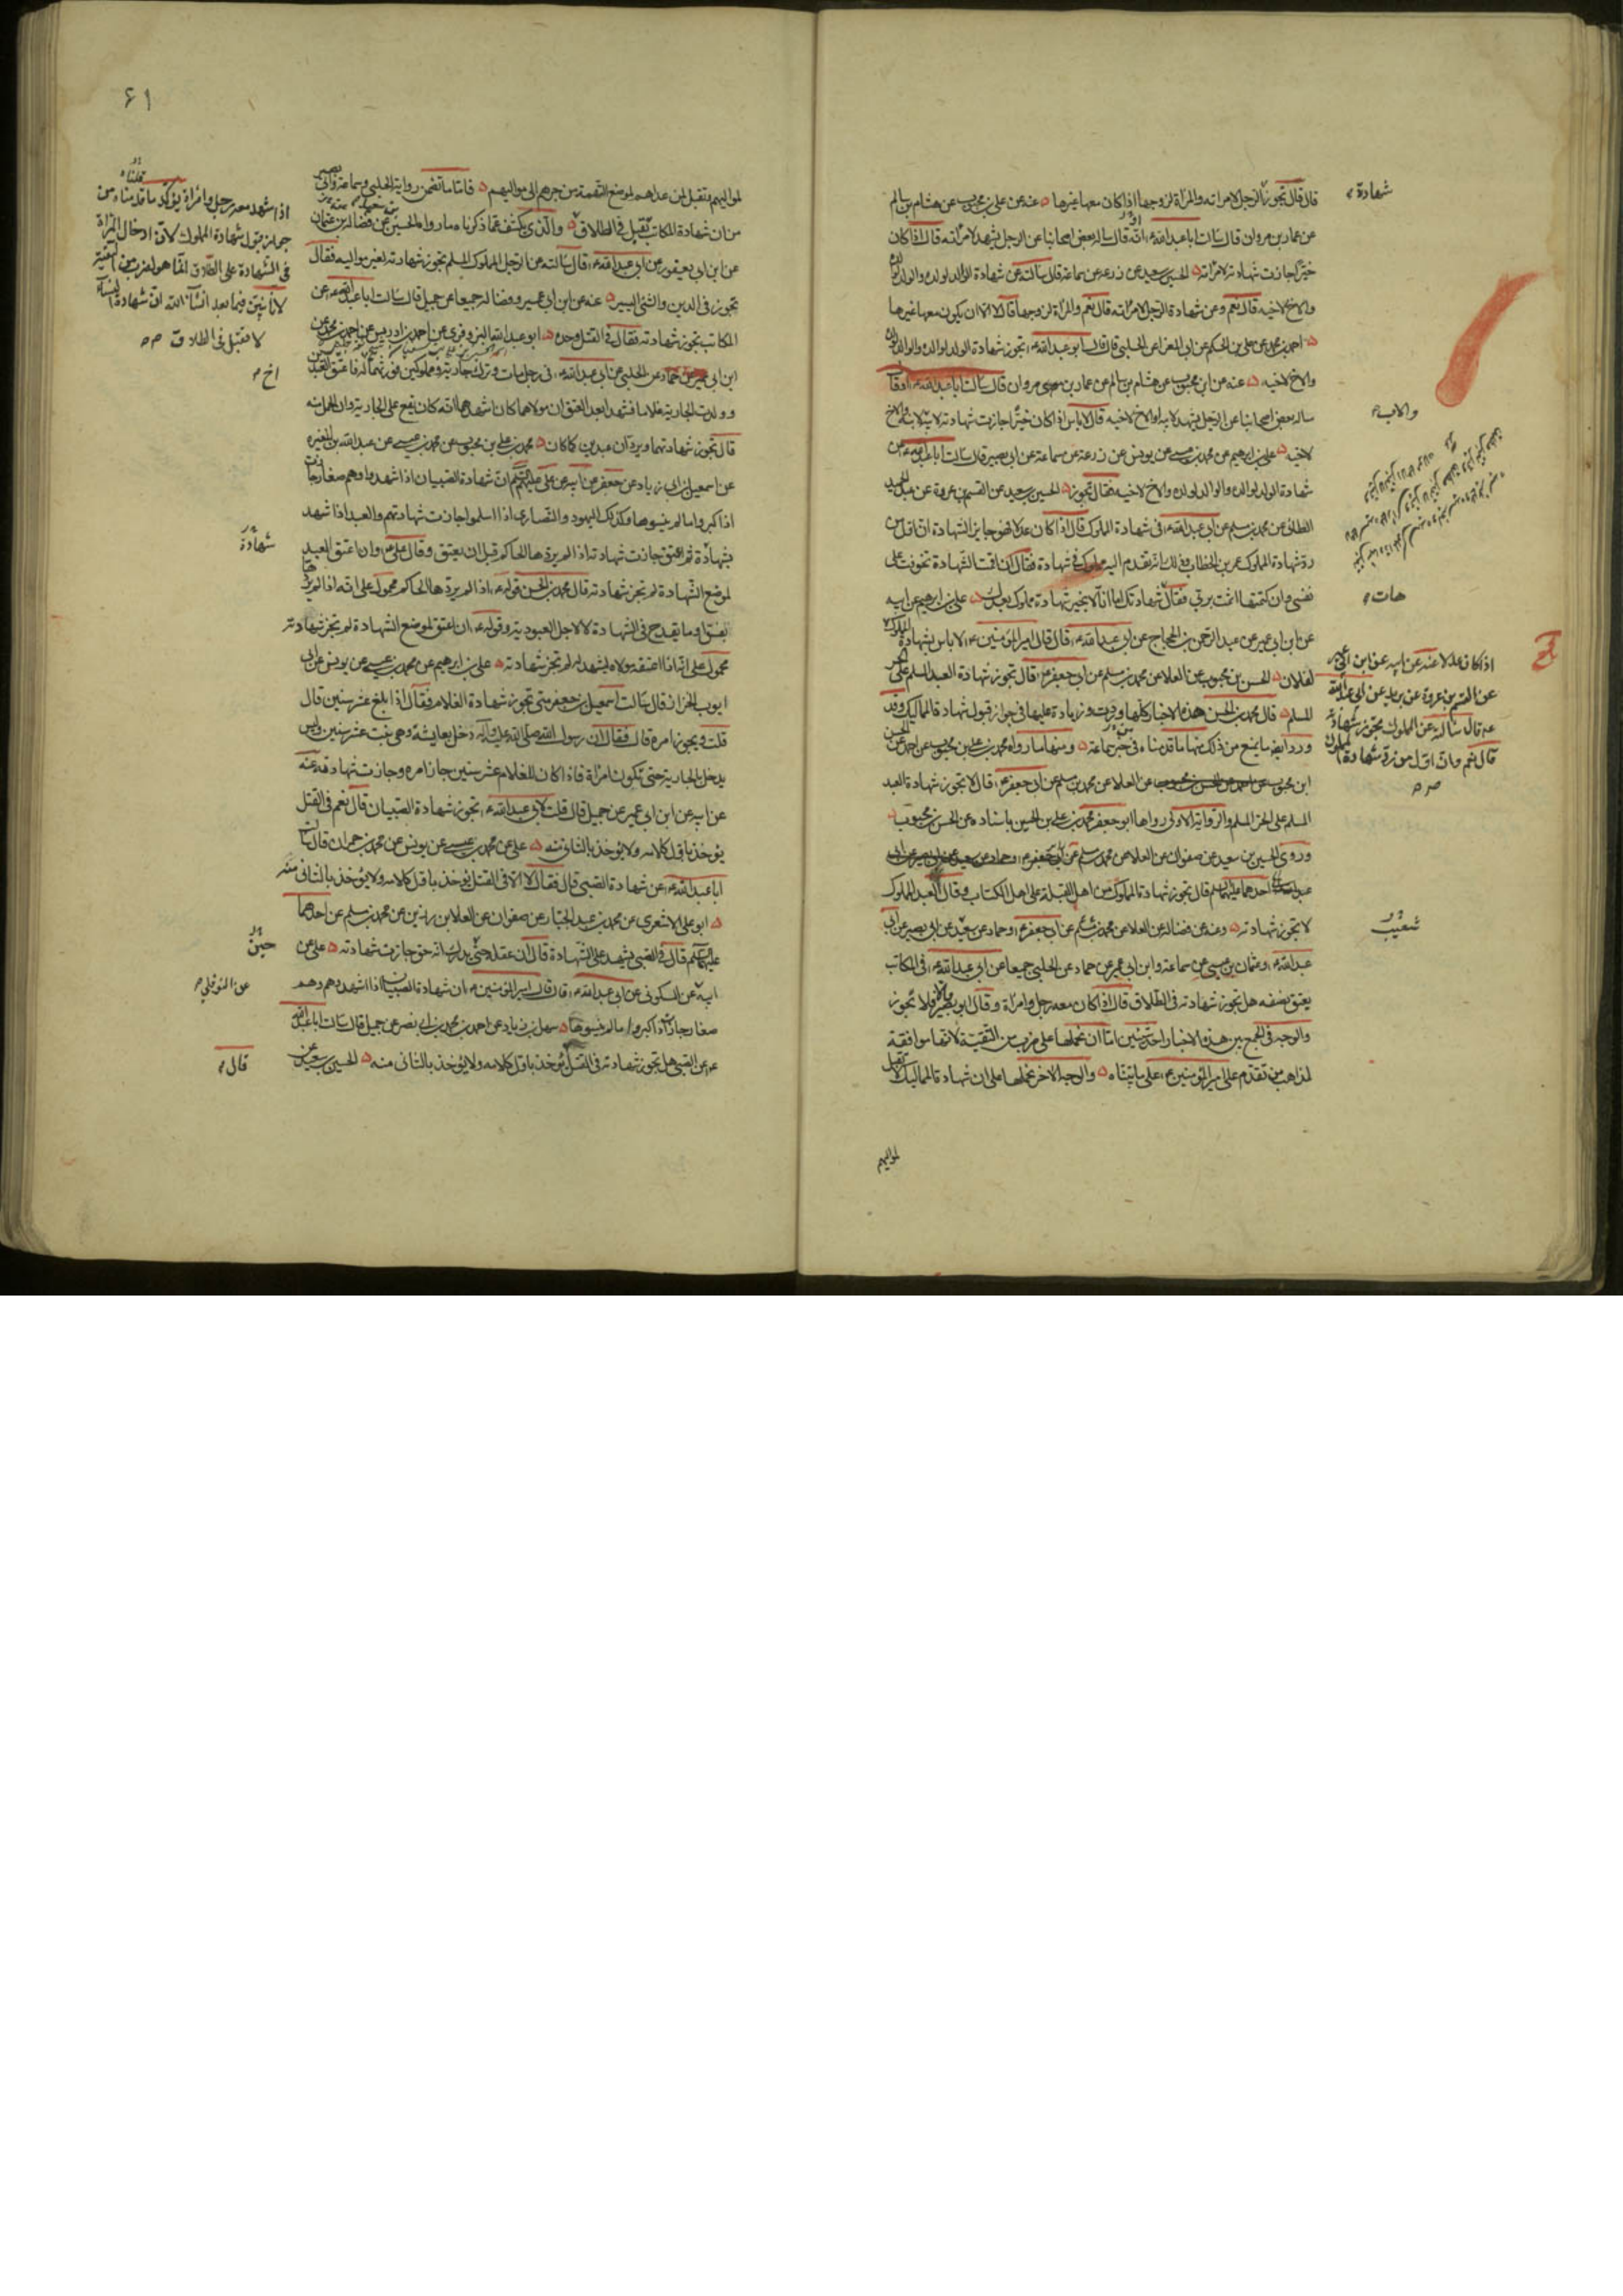 قال قال تجوز شهادة الرجل لامراته والمراة لزوجها اذا كان معها غيرها عنه عن علي بن محبوب عن هشام بن سالم
عن عمار بن مروان قال سالت ابا عبد الله ع او قال ساله بعض اصحابنا عن الرجل يشهد لامراته قال اذا كان
خيرا جازت شهادته لامراته الحسين بن سعيد عن زرعه عن سماعة قال سالته عن شهادة الوالد لولده والولد لوالده
والاخ لاخيه قال نعم وعن شهادة الرجل لامراته قال نعم والمراة لزوجها قال لا الا ان يكون معها غيرها
احمد بن محمد عن علي بن الحكم عن ابي المغرا عن الحلبي قال قال ابو عبد الله ع تجوز شهادة الولد لوالده والوالد لولده
والاخ لاخيه عنه عن ابن محبوب عن هشام بن سالم عن عمار بن مروان قال سالت ابا عبد الله ع او قال
ساله بعض اصحابنا عن الرجل يشهد لابيه او الاخ لاخيه قال لا باس اذا كان خيرا جازت شهادته لابيه والاب لابنه والاخ
لاخيه علي بن ابرهيم عن محمد بن عيسى عن يونس عن زرعة عن سماعة عن ابي بصير قال سالت ابا عبد الله ع عن
شهادة الولد لوالده والوالد لولده والاخ لاخيه فقال تجوز الحسين بن سعيد عن القسم بن عروة عن عبد الحميد
الطائي عن محمد بن مسلم عن ابي عبد الله ع في شهادة المملوك قال اذا كان عدلا فهو جايز الشهادة ان اول من
رد شهادة المملوك عمر بن الخطاب وذلك انه تقدم اليه مملوك في شهادة فقال ان اقمت الشهادة تخوفت على
نفسي وان كتمتها اثمت بربي فقال هات شهادتك اما انا لا نجيز شهادة مملوك بعدك علي بن ابرهيم عن ابيه
عن ابن ابي عمير عن عبد الرحمن بن الحجاج عن ابي عبد الله ع قال قال امير المؤمنين ع لا باس بشهادة المملوك
اذا كان عدلا عنه عن ابيه عن ابن ابي عمير
عن القسم بن عروة عن بريد عن ابي عبد الله
ع قال سالته عن المملوك تجوز شهادته
قال نعم وان اول من رد شهادة المملوك
لفلان الحسن بن محبوب عن العلا عن محمد بن مسلم عن ابي جعفر ع قال تجوز شهادة العبد المسلم على الحر
المسلم قال محمد بن الحسن هذه الاخبار كلها وردت وزيادة عليها في جواز قبول شهادة المماليك وقد
ورد ايضا ما يمنع من ذلك منها ما قدمناه في خبر سماعة ومنها ما رواه محمد بن علي بن محبوب عن احمد عن الحسن
ابن محبوب عن العلا عن محمد بن مسلم عن ابي جعفر ع قال لا تجوز شهادة العبد
المسلم على الحر المسلم والرواية الاولى رواها ابو جعفر محمد بن علي بن الحسين باسناده عن الحسن بن محبوب
وروى الحسين بن سعيد عن صفوان عن العلا عن محمد بن مسلم عن
احدهما عليهما السلام قال تجوز شهادة المملوك من اهل القبلة على اهل الكتاب وقال العبد المملوك
لا تجوز شهادته وعنه عن فضالة عن العلا عن محمد بن مسلم عن ابي جعفر ع وحماد عن شعيب عن ابي بصير عن ابي
عبد الله ع وعثمان بن عيسى عن سماعة وابن ابي عمير عن حماد عن الحلبي جميعا عن ابي عبد الله ع في المكاتب
يعتق نصفه هل تجوز شهادته في الطلاق قال اذا كان معه رجل وامراة وقال ابو بصير والا فلا تجوز
والوجه في الجمع بين هذه الاخبار احد شيئين اما ان نحملها على ضرب من التقية لانها موافقة
لمذاهب من تقدم على امير المؤمنين ع على ما بيناه والوجه الاخر نحملها على ان شهادة المماليك لا تقبل
لمواليهم
٦١
لمواليهم وتقبل لمن عداهم لموضع التهمة من جرهم الى مواليهم فاما ما تضمن رواية الحلبي وسماعة وابي بصير
من ان شهادة المكاتب تقبل في الطلاق
اذا شهد معه رجل وامراة يؤكد ما قدمناه من
جواز قبول شهادة المملوك لان ادخال المراة
في الشهادة على الطلاق انما هو لضرب من التقية
لانا نبين فيما بعد انشاء الله ان شهادة النساء
لا تقبل في الطلاق
والذي يكشف عما ذكرناه ما رواه الحسين بن سعيد عن فضالة بن عثمان
عن ابن ابي يعفور عن ابي عبد الله ع قال سالته عن الرجل المملوك المسلم تجوز شهادته لغير مواليه فقال
تجوز في الدين والشئ اليسير عنه عن ابن ابي عمير وفضالة جميعا عن جميل قال سالت ابا عبد الله ع عن
المكاتب تجوز شهادته فقال في القتل وحده ابو عبد الله البزوفري عن احمد بن ادريس عن احمد بن محمد عن
ابن ابي عمير عن حماد عن الحلبي عن ابي عبد الله ع في رجل مات وترك جارية ومملوكين فورثهما اخ له فاعتق العبدين
وولدت الجارية غلاما فشهدا بعد العتق ان مولاهما كان اشهدهما انه كان يقع على الجارية وان الحمل منه
قال تجوز شهادتهما ويردان عبدين كما كانا محمد بن علي بن محبوب عن محمد بن عيسى عن عبد الله بن المغيرة
عن اسمعيل بن ابي زياد عن جعفر عن ابيه عن علي عليهم السلام ان شهادة الصبيان اذا شهدوا وهم صغار جازت
اذا كبروا ما لم ينسوها وكذلك اليهود والنصارى اذا اسلموا جازت شهادتهم والعبد اذا شهد
بشهادة ثم اعتق جازت شهادته اذا لم يردها الحاكم قبل ان يعتق وقال علي ع وان اعتق العبد
لموضع الشهادة لم تجز شهادته قال محمد بن الحسن قوله ع اذا لم يردها الحاكم محمول على انه اذا لم يرد
بفسق او ما يقدح في الشهادة لا لاجل العبودية وقوله ع ان اعتق لموضع الشهادة لم تجز شهادته
محمول على انه اذا اعتقه مولاه ليشهد له لم تجز شهادته علي بن ابرهيم عن محمد بن عيسى عن يونس عن ابي
ايوب الخزاز قال سالت اسمعيل بن جعفر متى تجوز شهادة الغلام فقال اذا بلغ عشر سنين قال
قلت ويجوز امره قال فقال ان رسول الله صلى الله عليه واله دخل بعايشة وهي بنت عشر سنين وليس
يدخل بالجارية حتى تكون امراة فاذا كان للغلام عشر سنين جاز امره وجازت شهادته عنه
عن ابيه عن ابن ابي عمير عن جميل قال قلت لابي عبد الله ع تجوز شهادة الصبيان قال نعم في القتل
يؤخذ باول كلامه ولا يؤخذ بالثاني منه علي عن محمد بن عيسى عن يونس عن محمد بن حمران قال سالت
ابا عبد الله ع عن شهادة الصبي قال فقال لا الا في القتل يؤخذ باول كلامه ولا يؤخذ بالثاني منه
ابو علي الاشعري عن محمد بن عبد الجبار عن صفوان عن العلا بن رزين عن محمد بن مسلم عن احدهما
عليهما السلام قال في الصبي يشهد على الشهادة قال ان عقله حين يدرك انه حق جازت شهادته علي عن
ابيه عن النوفلي عن السكوني عن ابي عبد الله ع قال قال امير المؤمنين ع ان شهادة الصبيان اذا اشهدوهم وهم
صغار جازت اذا كبروا ما لم ينسوها سهل بن زياد عن احمد بن محمد بن ابي نصر عن جميل قال سالت ابا عبد الله
ع عن الصبي هل تجوز شهادته في القتل قال يؤخذ باول كلامه ولا يؤخذ بالثاني منه الحسين بن سعيد عن